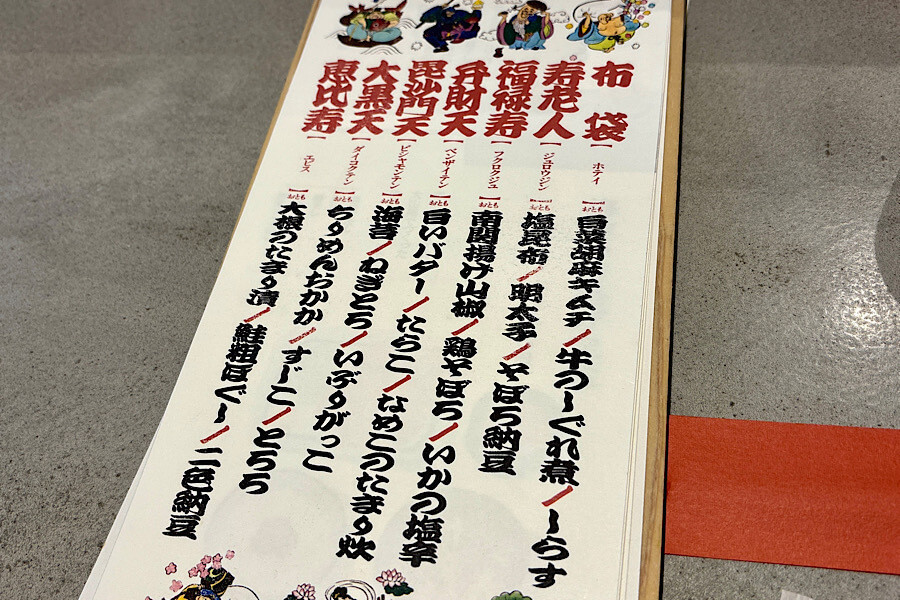 布袋【ホテイ】おとも 白菜胡麻キムチ/牛のしぐれ煮/しらす
寿老人【ジュロウジン】おとも 塩昆布/明太子/そぼろ納豆
福禄寿【フクロクジュ】おとも 南関揚げ山椒/鶏そぼろ/いかの塩辛
弁財天【ベンザイテン】おとも 白いバター/たらこ/なめこのたまり炊
毘沙門天【ビシャモンテン】おとも 海苔/ねぎとろ/いぶりがっこ
大黒天【ダイコクテン】おとも ちりめんおかか/すじこ/とろろ
恵比寿【エビス】おとも 大根のたまり漬/鮭粗ほぐし/二色納豆